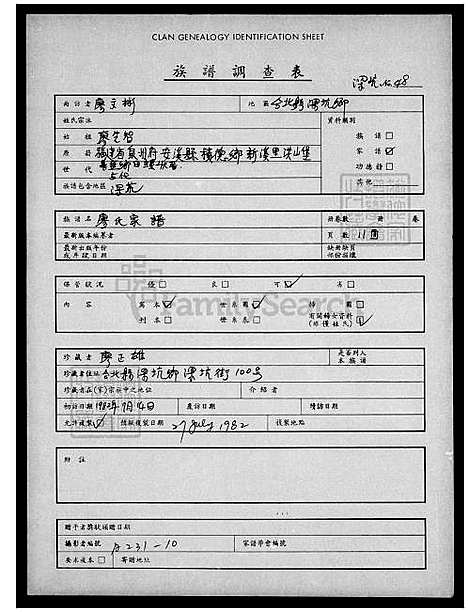 CLAN GENEALOGY IDENTIFICATION SHEET
族譜調查表
深坑 No. 48
向訪者 廖文彬 地區 台北縣深坑鄉
姓氏宗派 資料類別
始祖 廖 族譜 □
原籍 福建省泉州府安溪縣積德鄉新溪里洪山堡 家譜 ☑
世代 功德錄 □
族譜包含地區 深坑 其他
族譜名 廖氏家譜 冊卷數 冊 卷
最新版本編纂者 頁數 11
最新出版年份 缺冊缺頁
或年號日期 部份描微
保管狀況 優 □ 良 □ 可 ☑ 劣 □
內容 寫本 ☑ 世系圖 ☑ 條圖 □
刊本 □ 世系表 □ 有關婦女資料 (非僅姓氏) ☑
FamilySearch
珍藏者 廖正雄 是否別人
本族譜
珍藏者住址 台北縣深坑鄉深坑街100号
珍藏者在(家)宗族中之地位 介紹者
初訪日期 1982年7月14日 產訪日期 續訪日期
允許複製 ☑ 情報複製日期 27 July 1982 複製地點
附註
贈予者獎狀頒贈日期
攝影者編號 A231-10 家譜學會編號
要求成本 □ 寄贈地址